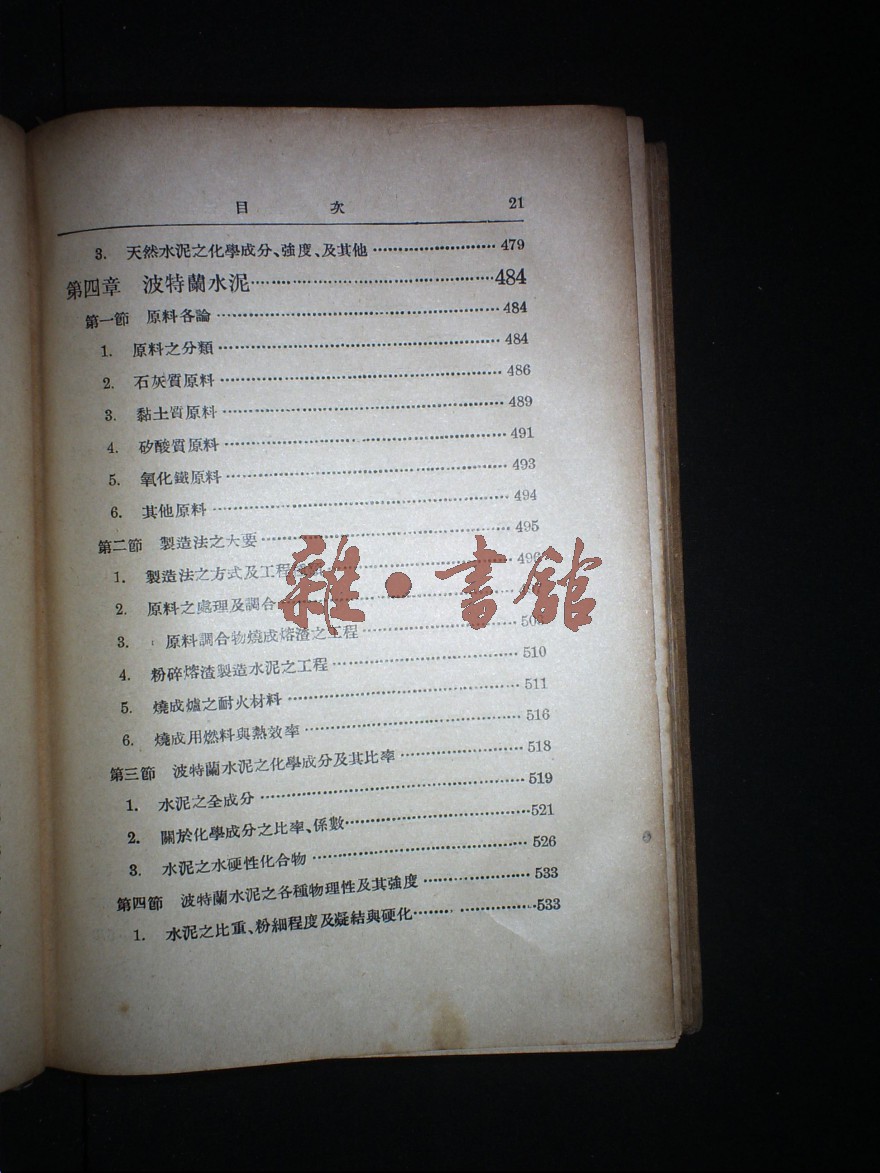 目 次 21
3. 天然水泥之化學成分、強度、及其他 479
第四章 波特蘭水泥 484
第一節 原料各論 484
1. 原料之分類 484
2. 石灰質原料 486
3. 黏土質原料 489
4. 矽酸質原料 491
5. 氧化鐵原料 493
6. 其他原料 494
第二節 製造法之大要 495
1. 製造法之方式及工程 496
2. 原料之處理及調合
3. 原料調合物燒成熔渣之工程
4. 粉碎熔渣製造水泥之工程 510
5. 燒成爐之耐火材料 511
6. 燒成用燃料與熱效率 516
第三節 波特蘭水泥之化學成分及其比率 518
1. 水泥之全成分 519
2. 關於化學成分之比率、係數 521
3. 水泥之水硬性化合物 526
第四節 波特蘭水泥之各種物理性及其強度 533
1. 水泥之比重、粉細程度及凝結與硬化 533
雜·書館